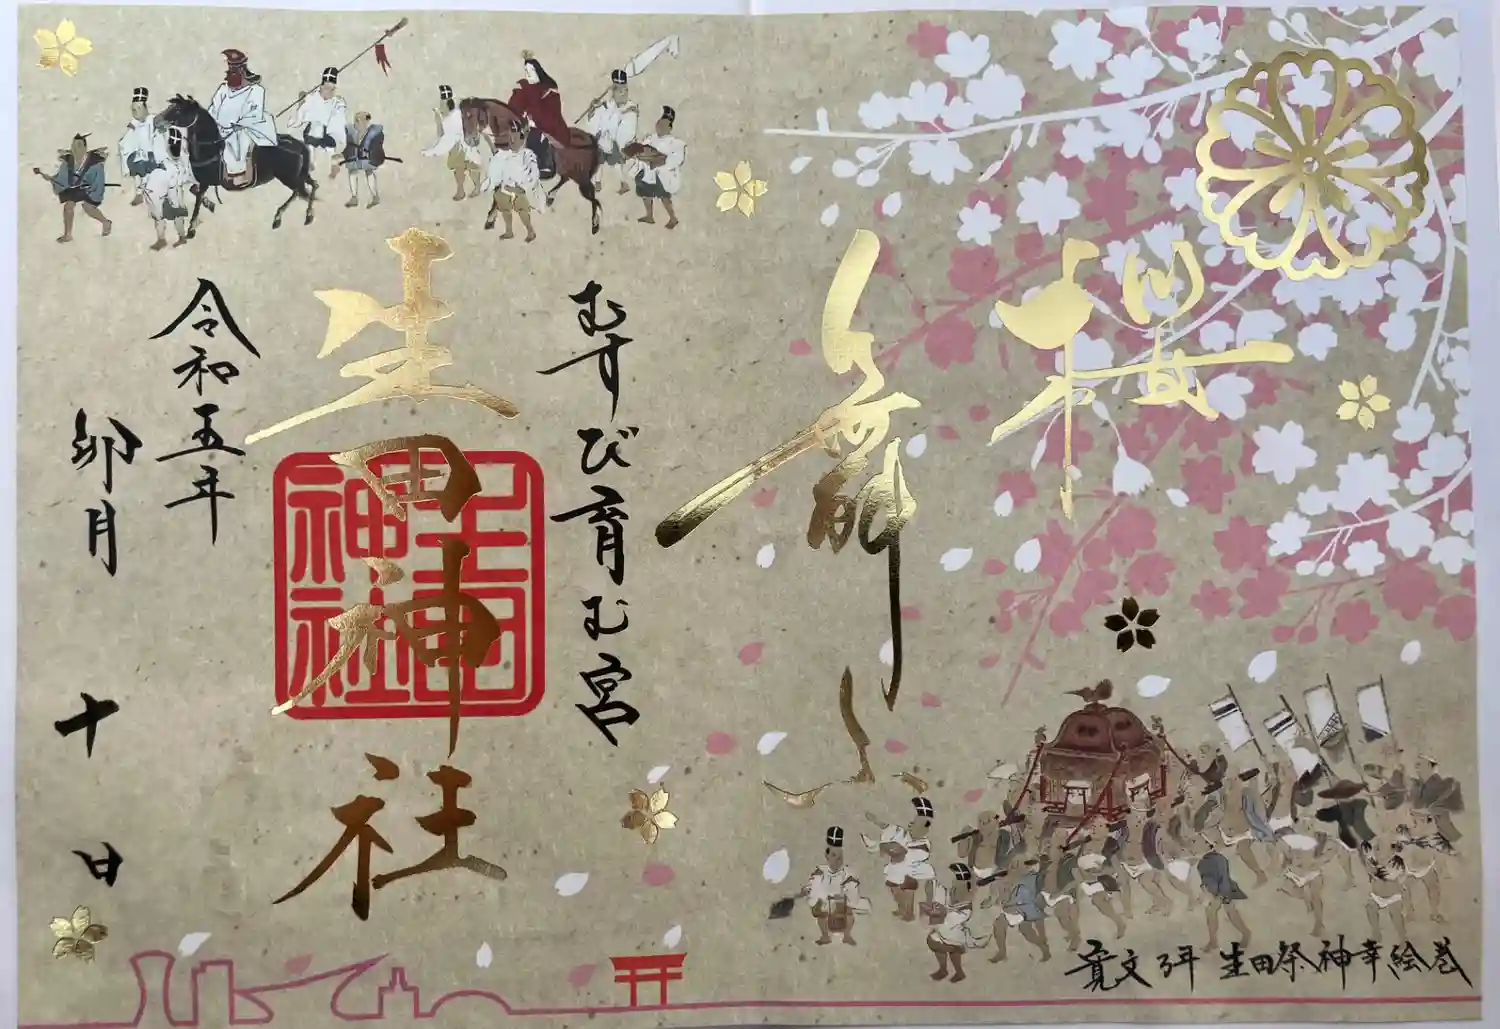 櫻
舞ふ
むすび育む宮
生田神社
生田神社
令和五年
卯月十日
寛文3年 生田祭神幸絵巻